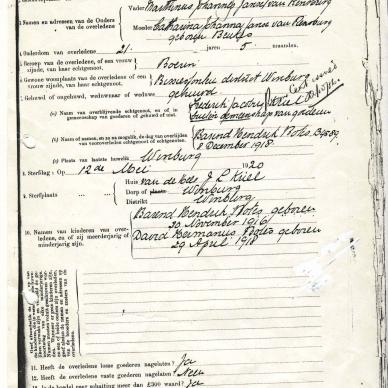 Vader Marthinus Johannes Janse van Rensburg
Namen en adressen van de Ouders
van de overledene
Moeder Catharina Johanna Janse van Rensburg
geboren Beukes
Ouderdom van overledene 21 jaren 5 maanden.
Beroep van de overledene, of van een vrouw
zijnde, van haar echtgenoot.
Boerin
Gewone woonplaats van de overledene, of een vrouw
zijnde, van haar echtgenoot.
distrikt Winburg
7. Gehuwd of ongehuwd, weduwenaar of weduwe
gehuwd
(a) Naam van overblijvende echtgenoot, en of in
gemeenschap van goederen gehuwd of niet.
Frederik Jacobus
buiten gemeenschap van goederen
(b) Naam of namen, en zo na mogelik, de dag van overlijden
van vooroverleden echtgenoot of echtgenoten.
Barend Hendrik Botes
8 December 1918
(c) Plaats van laatste huwelik Winburg
8. Sterfdag: Op 12de Mei 1920
9. Sterfplaats
Huis van de Heer J L Kriel
Dorp of plaats Winburg
Distrikt Winburg
10. Namen van kinderen van over-
ledene, en of zij meerderjarig of
minderjarig zijn.
Barend Hendrik Botes geboren
30 November 1916
David Hermanus Botes geboren
29 April 1918
11. Heeft de overledene losse goederen nagelaten? Ja
12. Heeft de overledene vaste goederen nagelaten? Neen
13. Is de boedel naar schatting meer dan £300 waard? Ja